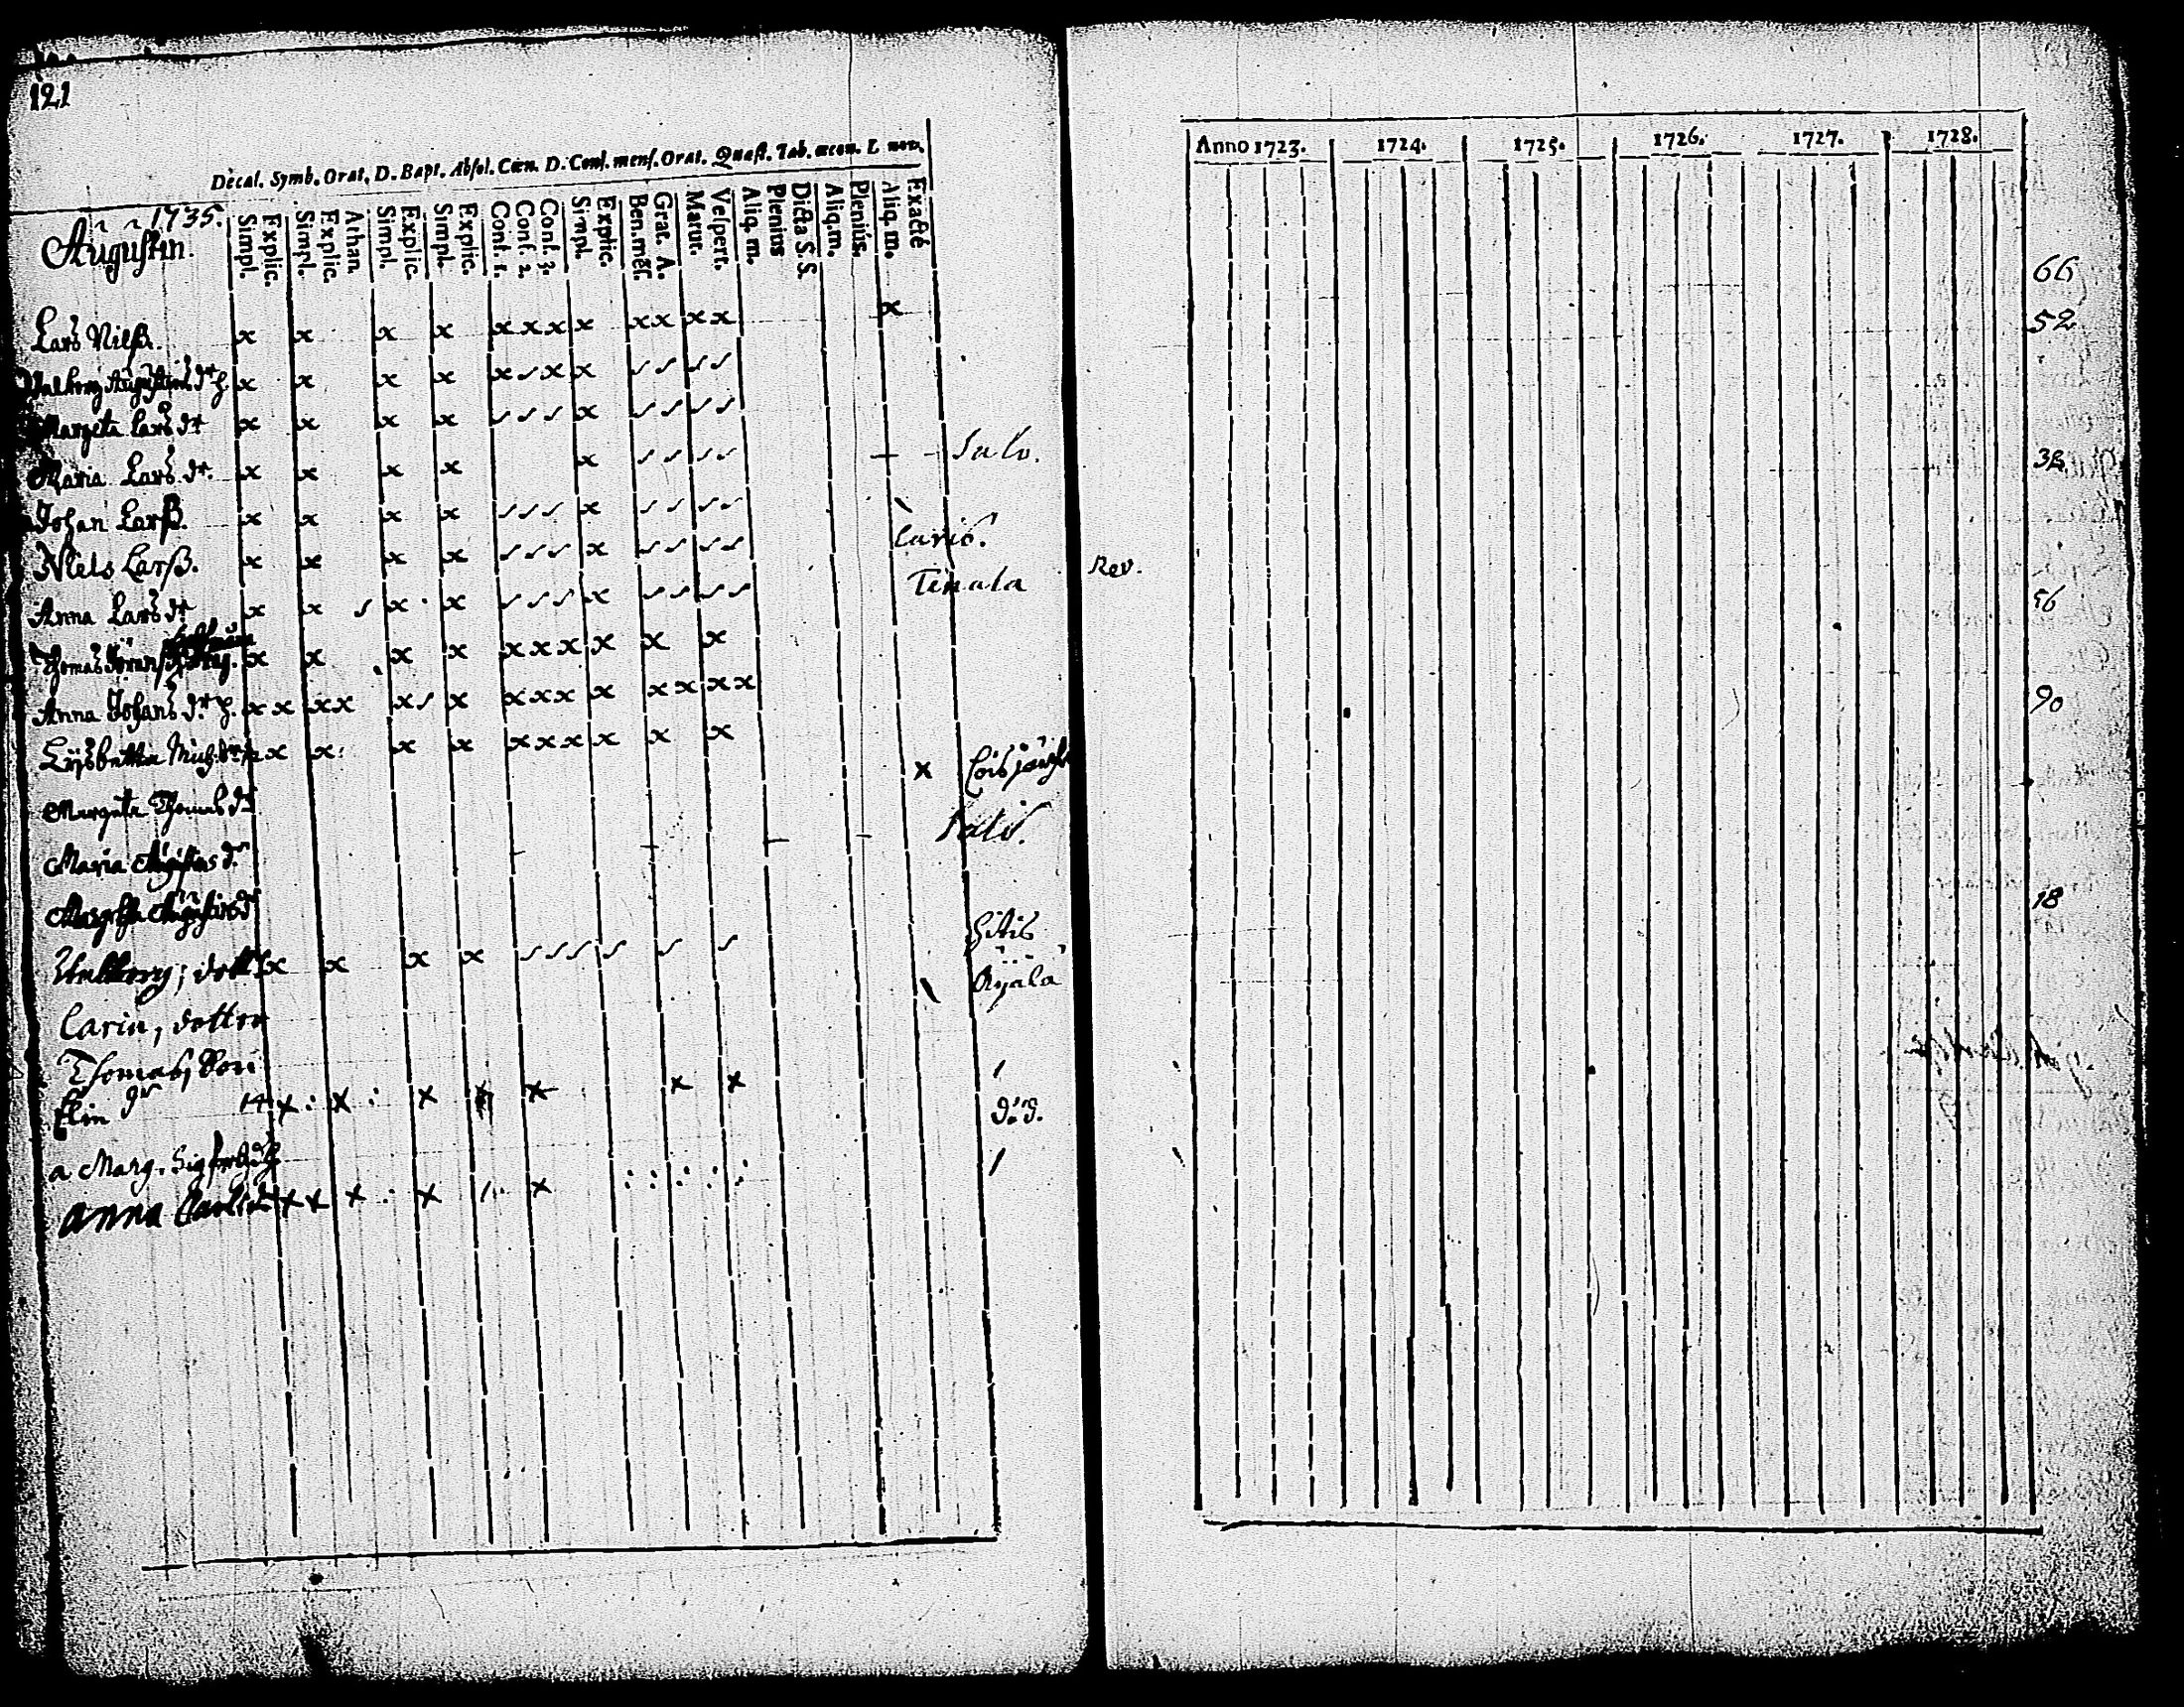 121
Decal. Symb. Orat. D. Bapt. Absol. Cœn. D. Conf. mens. Orat. Quæst. Tab. œcon. L nov.
1735.
Augustin.
Simpl. Explic. Simpl. Explic. Athan. Simpl. Explic. Simpl. Explic. Conf. 1. Conf. 2. Conf. 3. Simpl. Explic. Ben. mens. Grat. A. Matut. Vespert. Aliq. m. Plenius Dicta S.S. Aliq. m. Plenius. Aliq. m. Exacté
Lars Nilß. x x x x x x x x x x x x x
Valborg Augustins dr h. x x x x x x x
Margeta Lars dr x x x x x
Maria Lars dr. x x x x x Salo.
Johan Larß. x x x x x
Niels Larß. x x x x x Caris.
Anna Lars dr x x x x x Tenala
Thomas x x x x x x x x x x
Anna Johans dr h. x x x x x x x x x x x x x x
Lijsbetta Mich. dr x x x x x x x x x x
Margeta Thomas dr x
Maria Augustins dr Salo.
Margeta Augustins dr
Valborg, dotter x x x x
Carin, dotter
Thomas, Son
Elin dr 14 x x x x x x
a Marg. Sigfrids dr
Anna Carls dr x x x x x
Anno 1723. 1724. 1725. 1726. 1727. 1728.
66
52
Rev.
90
18